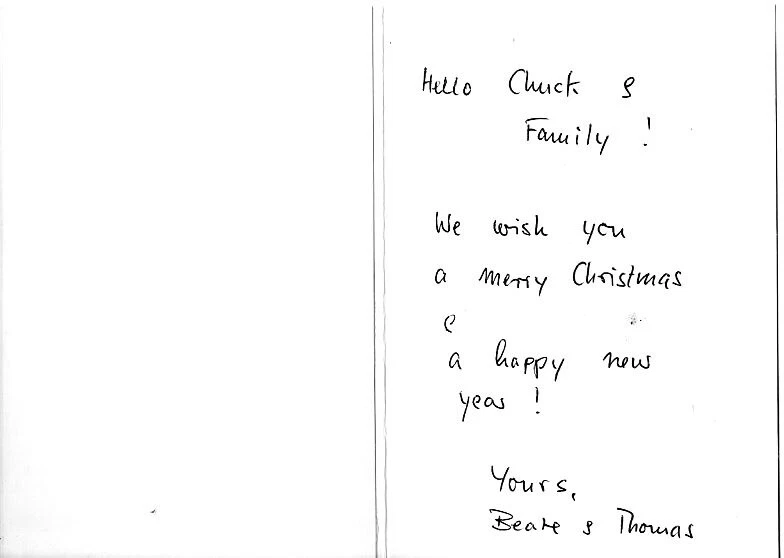 Hello Chuck &
Family !
We wish you
a merry Christmas
&
a happy new
year !
Yours,
Beate & Thomas